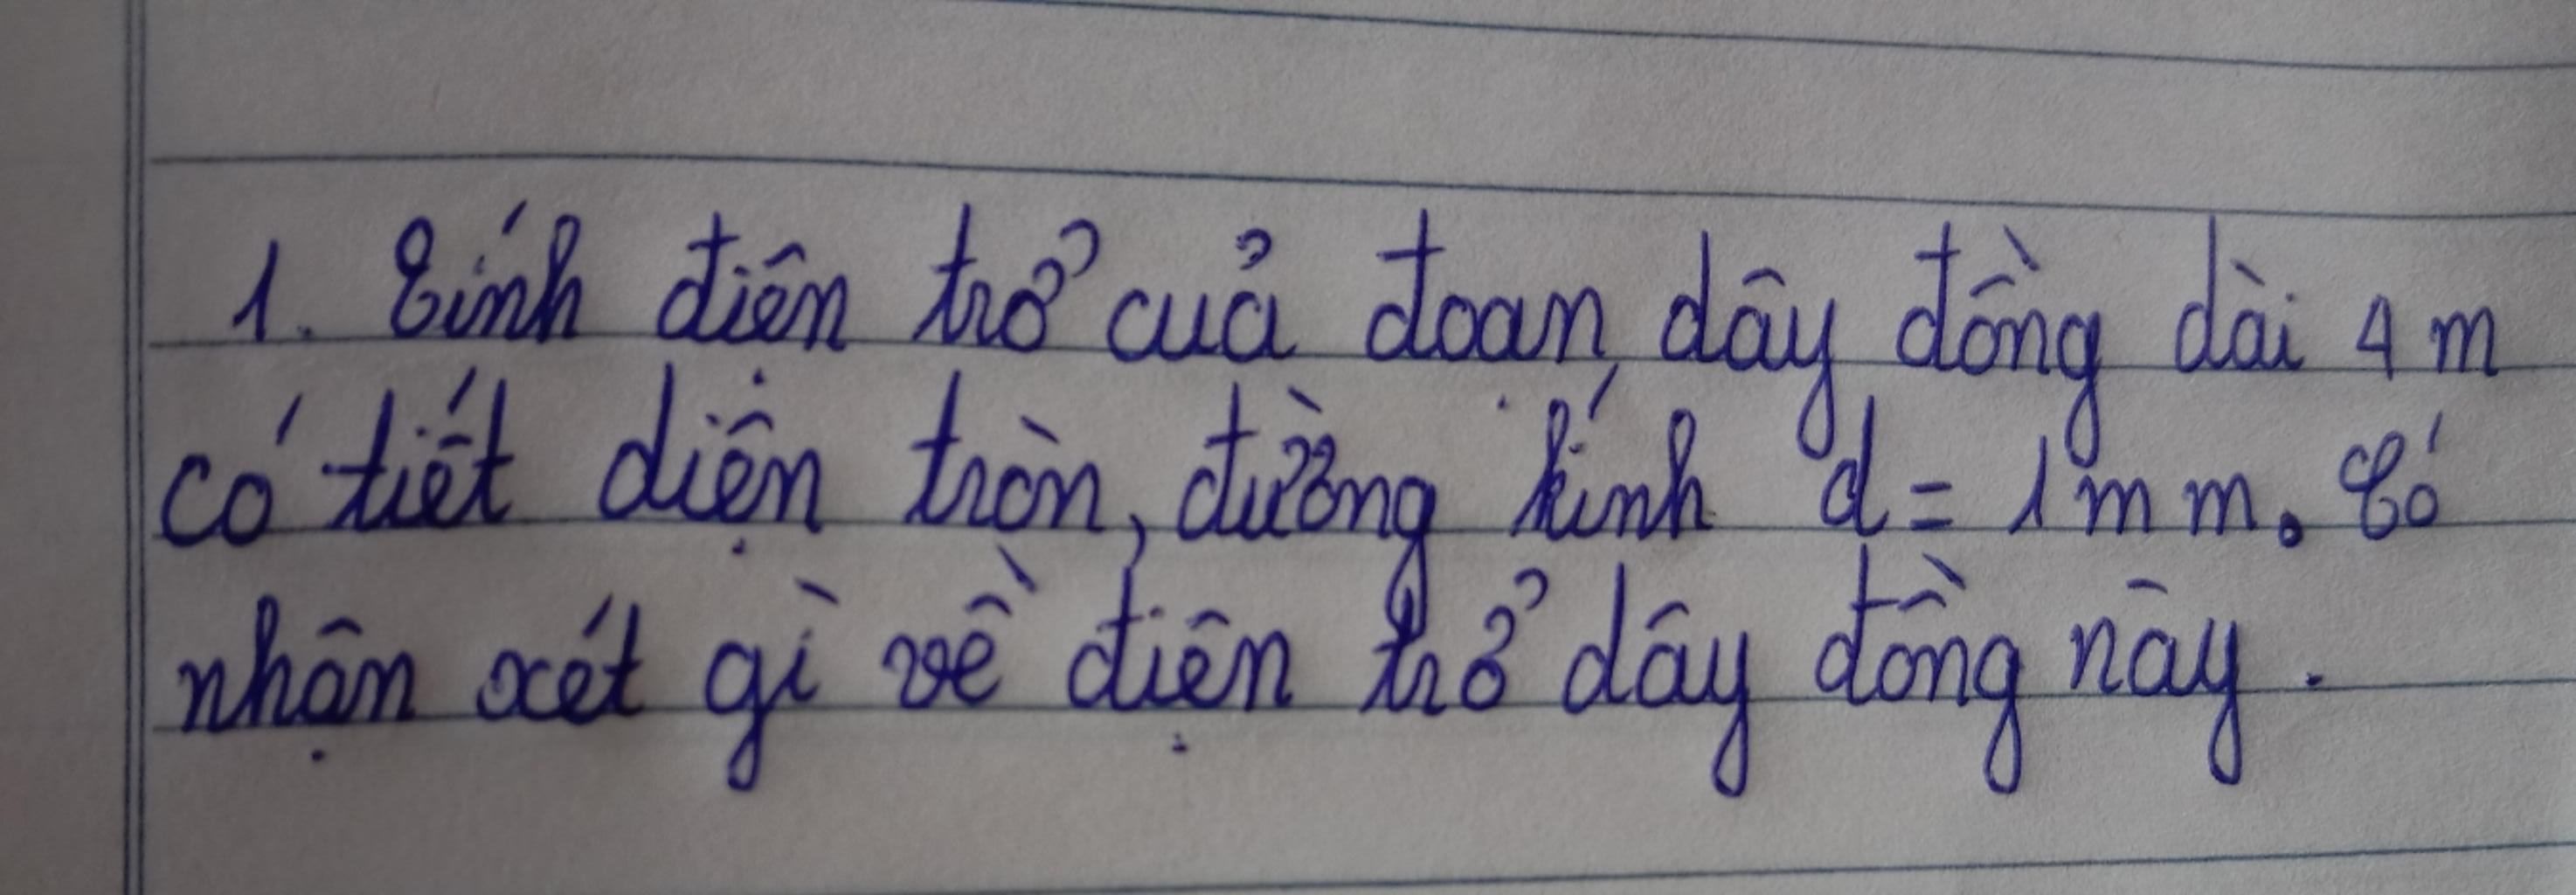 1. Tính điện trở của đoạn dây đồng dài 4 m
có tiết diện tròn, đường kính d = 1 m m. Có
nhận xét gì về điện trở dây đồng này.